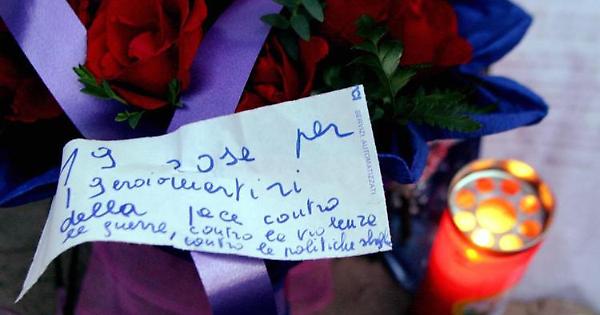 19 rose per
i 19 eroi o martiri
della pace contro
le guerre, contro la violenza
contro le politiche
SERVIZI AUTOMATIZZATI